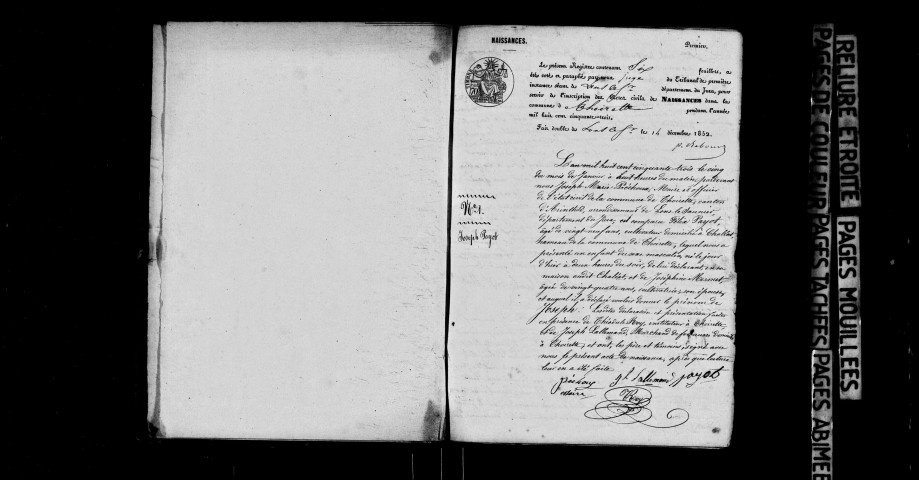 NAISSANCES.
Premier.
Le présent Registre contenant Six feuillets, a
été coté et paraphé par nous Juge du Tribunal de première
instance séant de département du Jura, pour
servir de l'inscription des Actes civils de NAISSANCES dans la
commune d pendant l'année
mil huit cent cinquante-trois.
Fait double de le 14 décembre 1852.
L'an mil huit cent cinquante trois le cinq
du mois de Janvier à huit heures du matin, pardevant
nous Joseph Marie Maire et officier
de l'état civil de la commune de Thoirette, canton
d'Arinthod, arrondissement de Lons le Saunier,
département du Jura, est comparu Payot,
âgé de vingt-neuf ans, cultivateur domicilié à
hameau de la commune de Thoirette, lequel nous a
présenté un enfant du sexe masculin, né le jour
d'hier à deux heures du soir, de lui déclarant, et en sa
maison audit et de Joséphine
âgée de vingt-quatre ans, cultivatrice, son épouse,
et auquel il a déclaré vouloir donner le prénom de
Joseph. Lesdites déclaration et présentation faites
en présence de Roy, instituteur à Thoirette
et de Joseph Lallemand, Marchand de
à Thoirette, et ont, les père et témoins, signé avec
nous le présent acte de naissance, après que lecture
leur en a été faite.
N° 1.
Joseph Payot
Lallemand payot
maire Roy
RELIURE ETROITE PAGES MOUILLEES
PAGES DE COULEUR PAGES TACHEES PAGES ABIMEE